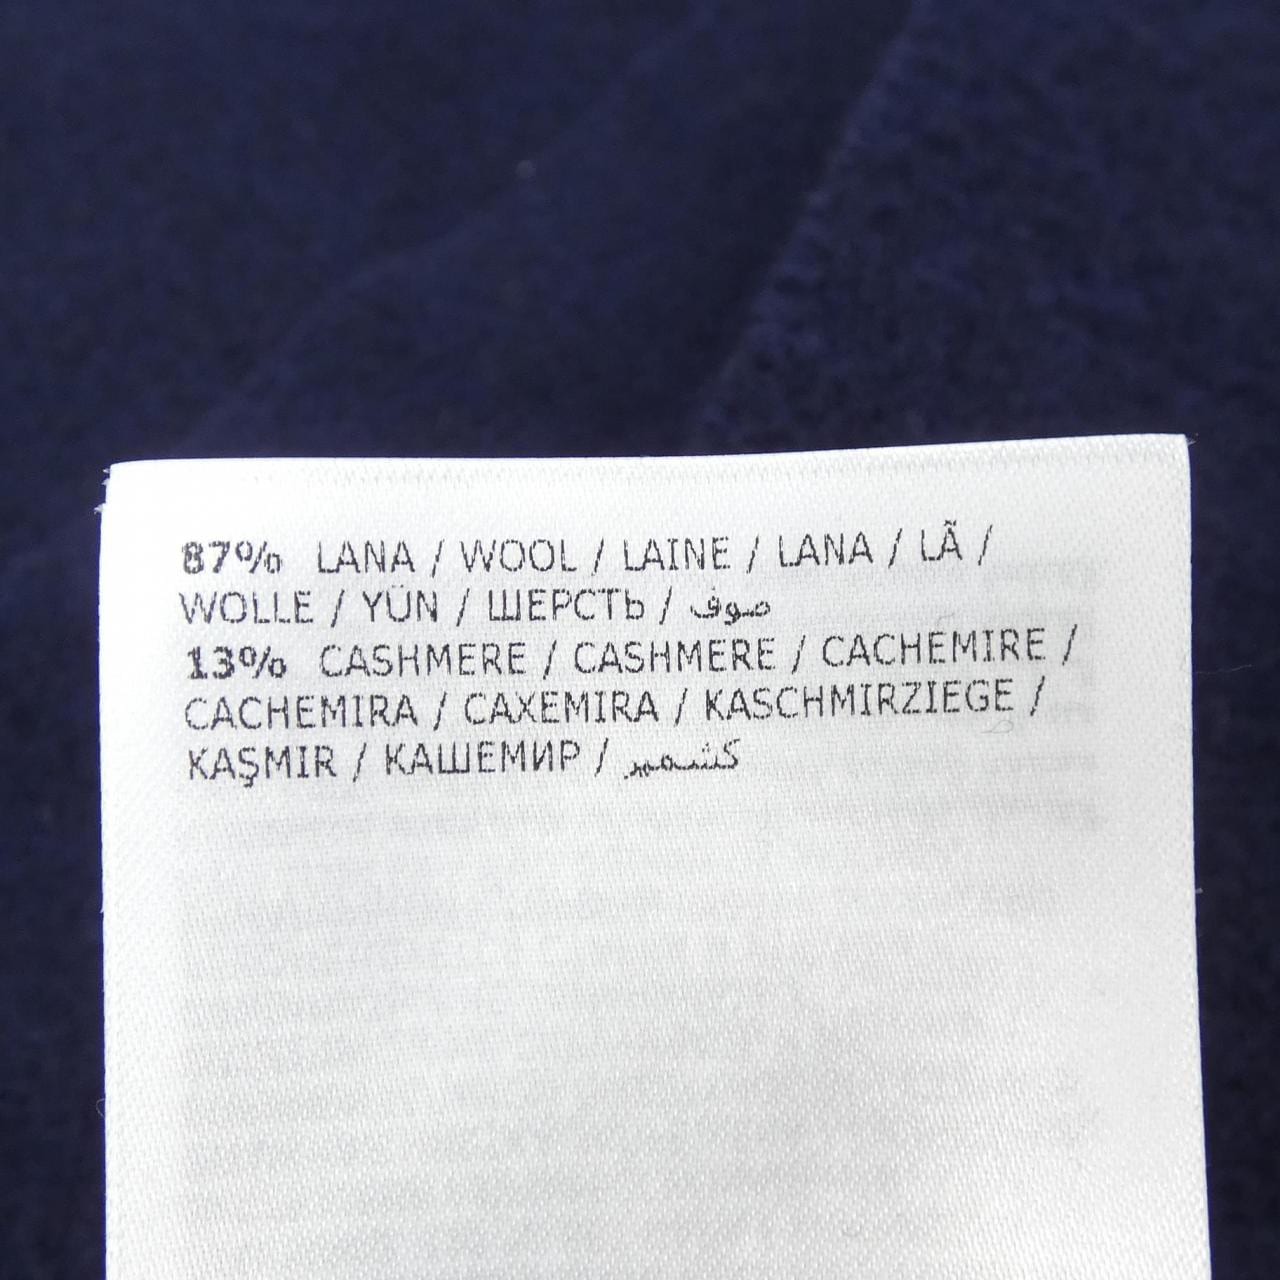 87% LANA / WOOL / LAINE / LANA / LÃ /
WOLLE / YÜN / ШЕРСТЬ / صوف
13% CASHMERE / CASHMERE / CACHEMIRE /
CACHEMIRA / CAXEMIRA / KASCHMIRZIEGE /
KAŞMIR / КАШЕМИР / كشمير